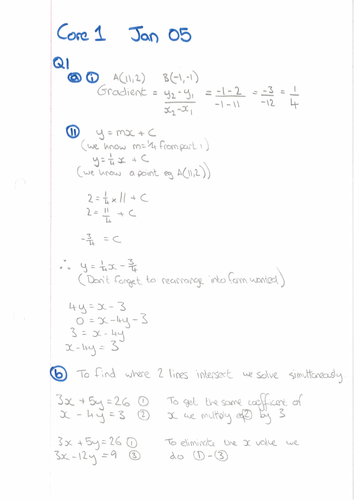 Core 1 Jan 05
Q1
(a) (i) A(11,2) B(-1,-1)
Gradient = y₂-y₁/x₂-x₁ = -1-2/-1-11 = -3/-12 = 1/4
(ii) y = mx + c
(we know m=1/4 from part i)
y = 1/4 x + c
(we know a point eg A(11,2))
2 = 1/4 × 11 + c
2 = 11/4 + c
-3/4 = c
∴ y = 1/4 x - 3/4
(Don't forget to rearrange into form wanted)
4y = x - 3
0 = x - 4y - 3
3 = x - 4y
x - 4y = 3
(b) To find where 2 lines intersect we solve simultaneously
3x + 5y = 26 ① To get the same coefficient of
x - 4y = 3 ② x we multiply ② by 3
3x + 5y = 26 ① To eliminate the x value we
3x - 12y = 9 ③ do ① - ③